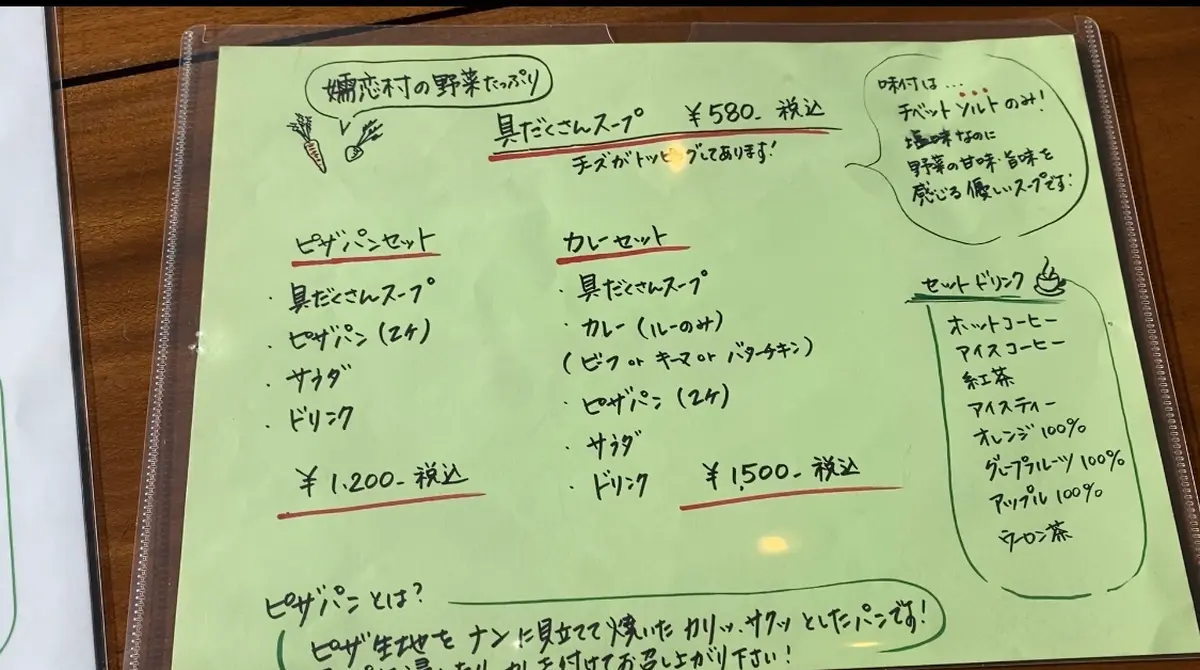 嬬恋村の野菜たっぷり
具だくさんスープ ¥580- 税込
チーズがトッピングしてあります!
味付は...
チベットソルトのみ!
塩味なのに
野菜の甘味・旨味を
感じる優しいスープです!
ピザパンセット
・具だくさんスープ
・ピザパン(2ケ)
・サラダ
・ドリンク
¥1,200- 税込
カレーセット
・具だくさんスープ
・カレー(ルーのみ)
(ビーフ or キーマ or バターチキン)
・ピザパン(2ケ)
・サラダ
・ドリンク
¥1,500- 税込
セットドリンク
ホットコーヒー
アイスコーヒー
紅茶
アイスティー
オレンジ100%
グレープフルーツ100%
アップル100%
ウーロン茶
ピザパンとは?
ピザ生地をナンに見立てて焼いたカリッ、サクッとしたパンです!
付けてお召し上がり下さい!